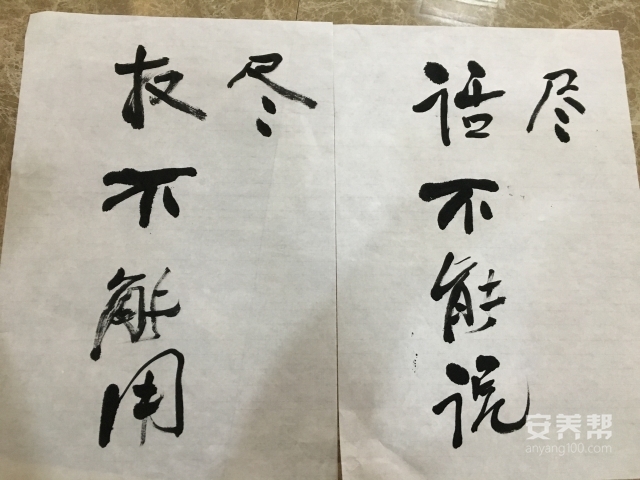 权不能用
尽
话不能说
尽
安养帮
anyang100.com